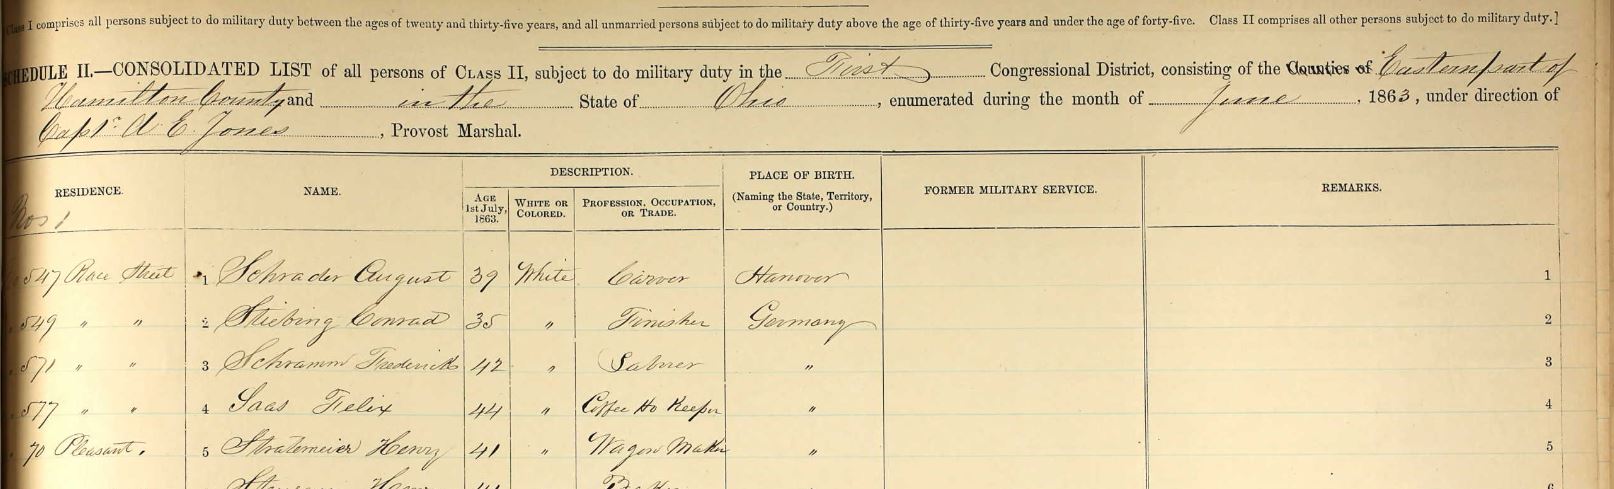 Class I comprises all persons subject to do military duty between the ages of twenty and thirty-five years, and all unmarried persons subject to do military duty above the age of thirty-five years and under the age of forty-five. Class II comprises all other persons subject to do military duty.]
SCHEDULE II.—CONSOLIDATED LIST of all persons of CLASS II, subject to do military duty in the First Congressional District, consisting of the Counties of Eastern part of
Hamilton County and in the State of Ohio, enumerated during the month of June, 1863, under direction of
Capt. A E. Jones, Provost Marshal.
RESIDENCE. NAME. DESCRIPTION. PLACE OF BIRTH. (Naming the State, Territory, or Country.) FORMER MILITARY SERVICE. REMARKS.
AGE 1st July, 1863. WHITE OR COLORED. PROFESSION, OCCUPATION, OR TRADE.
547 Race Street 1 Schrader August 39 White Carver Hanover 1
549 " " 2 Stiebing Conrad 35 " Finisher Germany 2
571 " " 3 Schramm Frederick 42 " Laborer " 3
577 " " 4 Saas Felix 44 " Coffee Ho Keeper " 4
70 Pleasant. 5 Stratemeier Henry 41 " Wagon Maker " 5